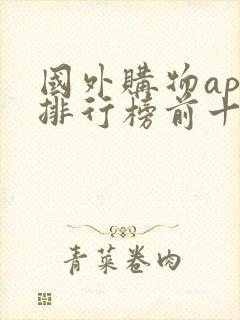 國外購物ap
排行榜前十
青菜卷肉